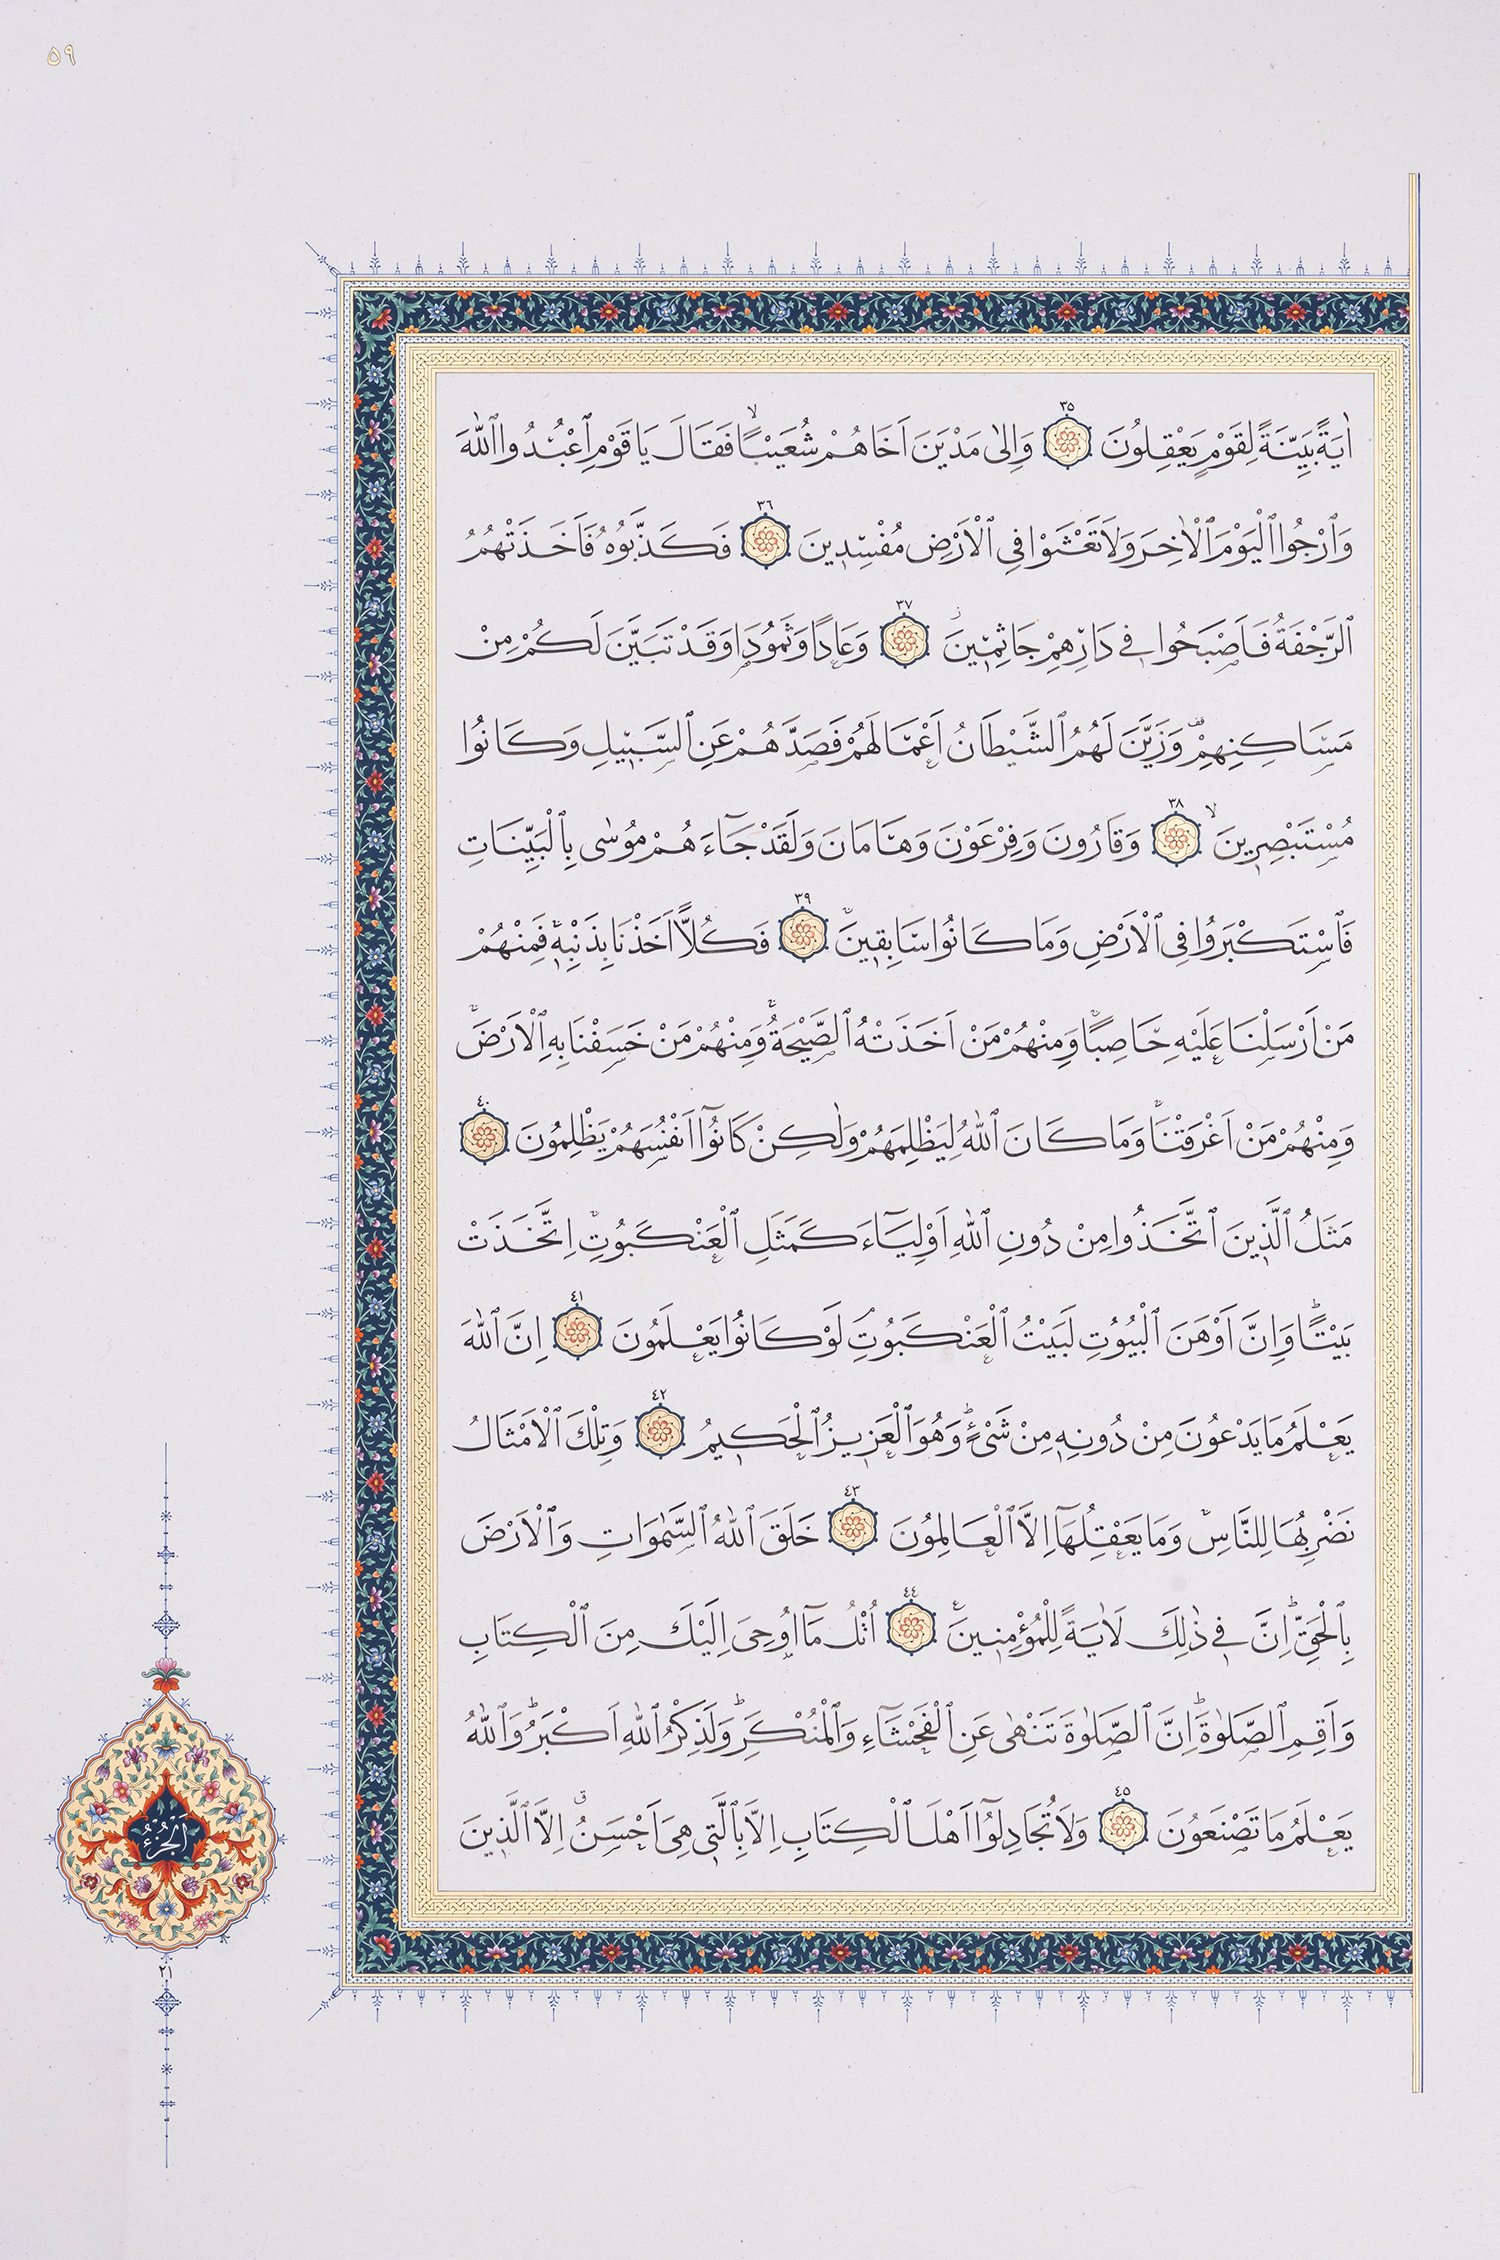 ٥٩
٣٥
اٰيَةً بَيِّنَةً لِقَوْمٍ يَعْقِلُونَ وَاِلٰى مَدْيَنَ اَخَاهُمْ شُعَيْبًاۙ فَقَالَ يَا قَوْمِ ٱعْبُدُوا ٱللّٰهَ
٣٦
وَٱرْجُوا ٱلْيَوْمَ ٱلْاٰخِرَ وَلَا تَعْثَوْا فِى ٱلْاَرْضِ مُفْسِدِينَ فَكَذَّبُوهُ فَاَخَذَتْهُمُ
٣٧
ٱلرَّجْفَةُ فَاَصْبَحُوا فِى دَارِهِمْ جَاثِمِينَ وَعَادًا وَثَمُودَا وَقَدْ تَبَيَّنَ لَكُمْ مِنْ
مَسَاكِنِهِمْ وَزَيَّنَ لَهُمُ ٱلشَّيْطَانُ اَعْمَالَهُمْ فَصَدَّهُمْ عَنِ ٱلسَّبِيلِ وَكَانُوا
٣٨
مُسْتَبْصِرِينَۙ وَقَارُونَ وَفِرْعَوْنَ وَهَامَانَ وَلَقَدْ جَٓاءَهُمْ مُوسٰى بِٱلْبَيِّنَاتِ
٣٩
فَٱسْتَكْبَرُوا فِى ٱلْاَرْضِ وَمَا كَانُوا سَابِقِينَ فَكُلًّا اَخَذْنَا بِذَنْبِهِ فَمِنْهُمْ
مَنْ اَرْسَلْنَا عَلَيْهِ حَاصِبًا وَمِنْهُمْ مَنْ اَخَذَتْهُ ٱلصَّيْحَةُ وَمِنْهُمْ مَنْ خَسَفْنَا بِهِ ٱلْاَرْضَ
٤٠
وَمِنْهُمْ مَنْ اَغْرَقْنَا وَمَا كَانَ ٱللّٰهُ لِيَظْلِمَهُمْ وَلٰكِنْ كَانُٓوا اَنْفُسَهُمْ يَظْلِمُونَ
مَثَلُ ٱلَّذِينَ ٱتَّخَذُوا مِنْ دُونِ ٱللّٰهِ اَوْلِيَٓاءَ كَمَثَلِ ٱلْعَنْكَبُوتِ اِتَّخَذَتْ
٤١
بَيْتًاۜ وَاِنَّ اَوْهَنَ ٱلْبُيُوتِ لَبَيْتُ ٱلْعَنْكَبُوتِۢ لَوْ كَانُوا يَعْلَمُونَ اِنَّ ٱللّٰهَ
٤٢
يَعْلَمُ مَا يَدْعُونَ مِنْ دُونِهِ مِنْ شَىْءٍۜ وَهُوَ ٱلْعَزِيزُ ٱلْحَكِيمُ وَتِلْكَ ٱلْاَمْثَالُ
٤٣
نَضْرِبُهَا لِلنَّاسِ وَمَا يَعْقِلُهَٓا اِلَّا ٱلْعَالِمُونَ خَلَقَ ٱللّٰهُ ٱلسَّمٰوَاتِ وَٱلْاَرْضَ
٤٤
بِٱلْحَقِّۜ اِنَّ فِى ذٰلِكَ لَاٰيَةً لِلْمُؤْمِنِينَ اُتْلُ مَٓا اُوحِىَ اِلَيْكَ مِنَ ٱلْكِتَابِ
وَاَقِمِ ٱلصَّلٰوةَۜ اِنَّ ٱلصَّلٰوةَ تَنْهٰى عَنِ ٱلْفَحْشَٓاءِ وَٱلْمُنْكَرِۜ وَلَذِكْرُ ٱللّٰهِ اَكْبَرُۜ وَٱللّٰهُ
٤٥
يَعْلَمُ مَا تَصْنَعُونَ وَلَا تُجَادِلُٓوا اَهْلَ ٱلْكِتَابِ اِلَّا بِٱلَّتِى هِىَ اَحْسَنُ اِلَّا ٱلَّذِينَ
اَلْجُزْءُ
٢١